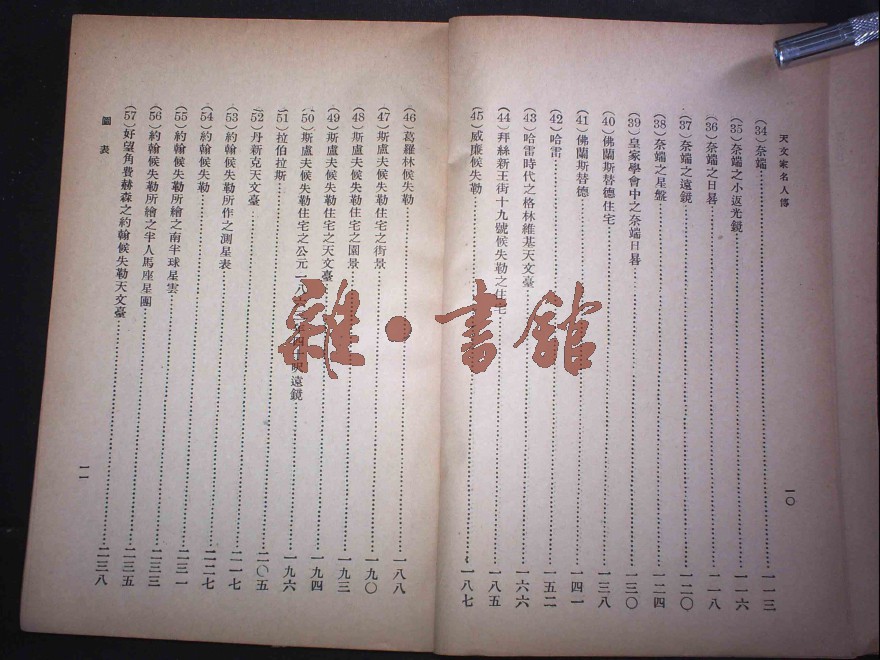 天文家名人傳
(34)奈端……一一三
(35)奈端之小返光鏡……一一六
(36)奈端之日晷……一一八
(37)奈端之遠鏡……一二〇
(38)奈端之星盤……一二四
(39)皇家學會中之奈端日晷……一三〇
(40)佛蘭斯替德住宅……一三八
(41)佛蘭斯替德……一四一
(42)哈雷……一五二
(43)哈雷時代之格林維基天文臺……一六六
(44)拜絲新王街十九號候失勒之住宅……一八五
(45)威廉候失勒……一八七
一〇
(46)葛羅林候失勒……一八八
(47)斯盧夫候失勒住宅之街景……一九〇
(48)斯盧夫候失勒住宅之園景……一九三
(49)斯盧夫候失勒住宅之天文臺……一九四
(50)斯盧夫候失勒住宅之公元一八年四十呎遠鏡……一九六
(51)拉伯拉斯……二〇五
(52)丹新克天文臺……二一七
(53)約翰候失勒所作之測星表……二二七
(54)約翰候失勒……二三一
(55)約翰候失勒所繪之南半球星雲……二三三
(56)約翰候失勒所繪之半人馬座星團……二三五
(57)好望角費赫森之約翰候失勒天文臺……二三八
圖表
一一
雜·書館